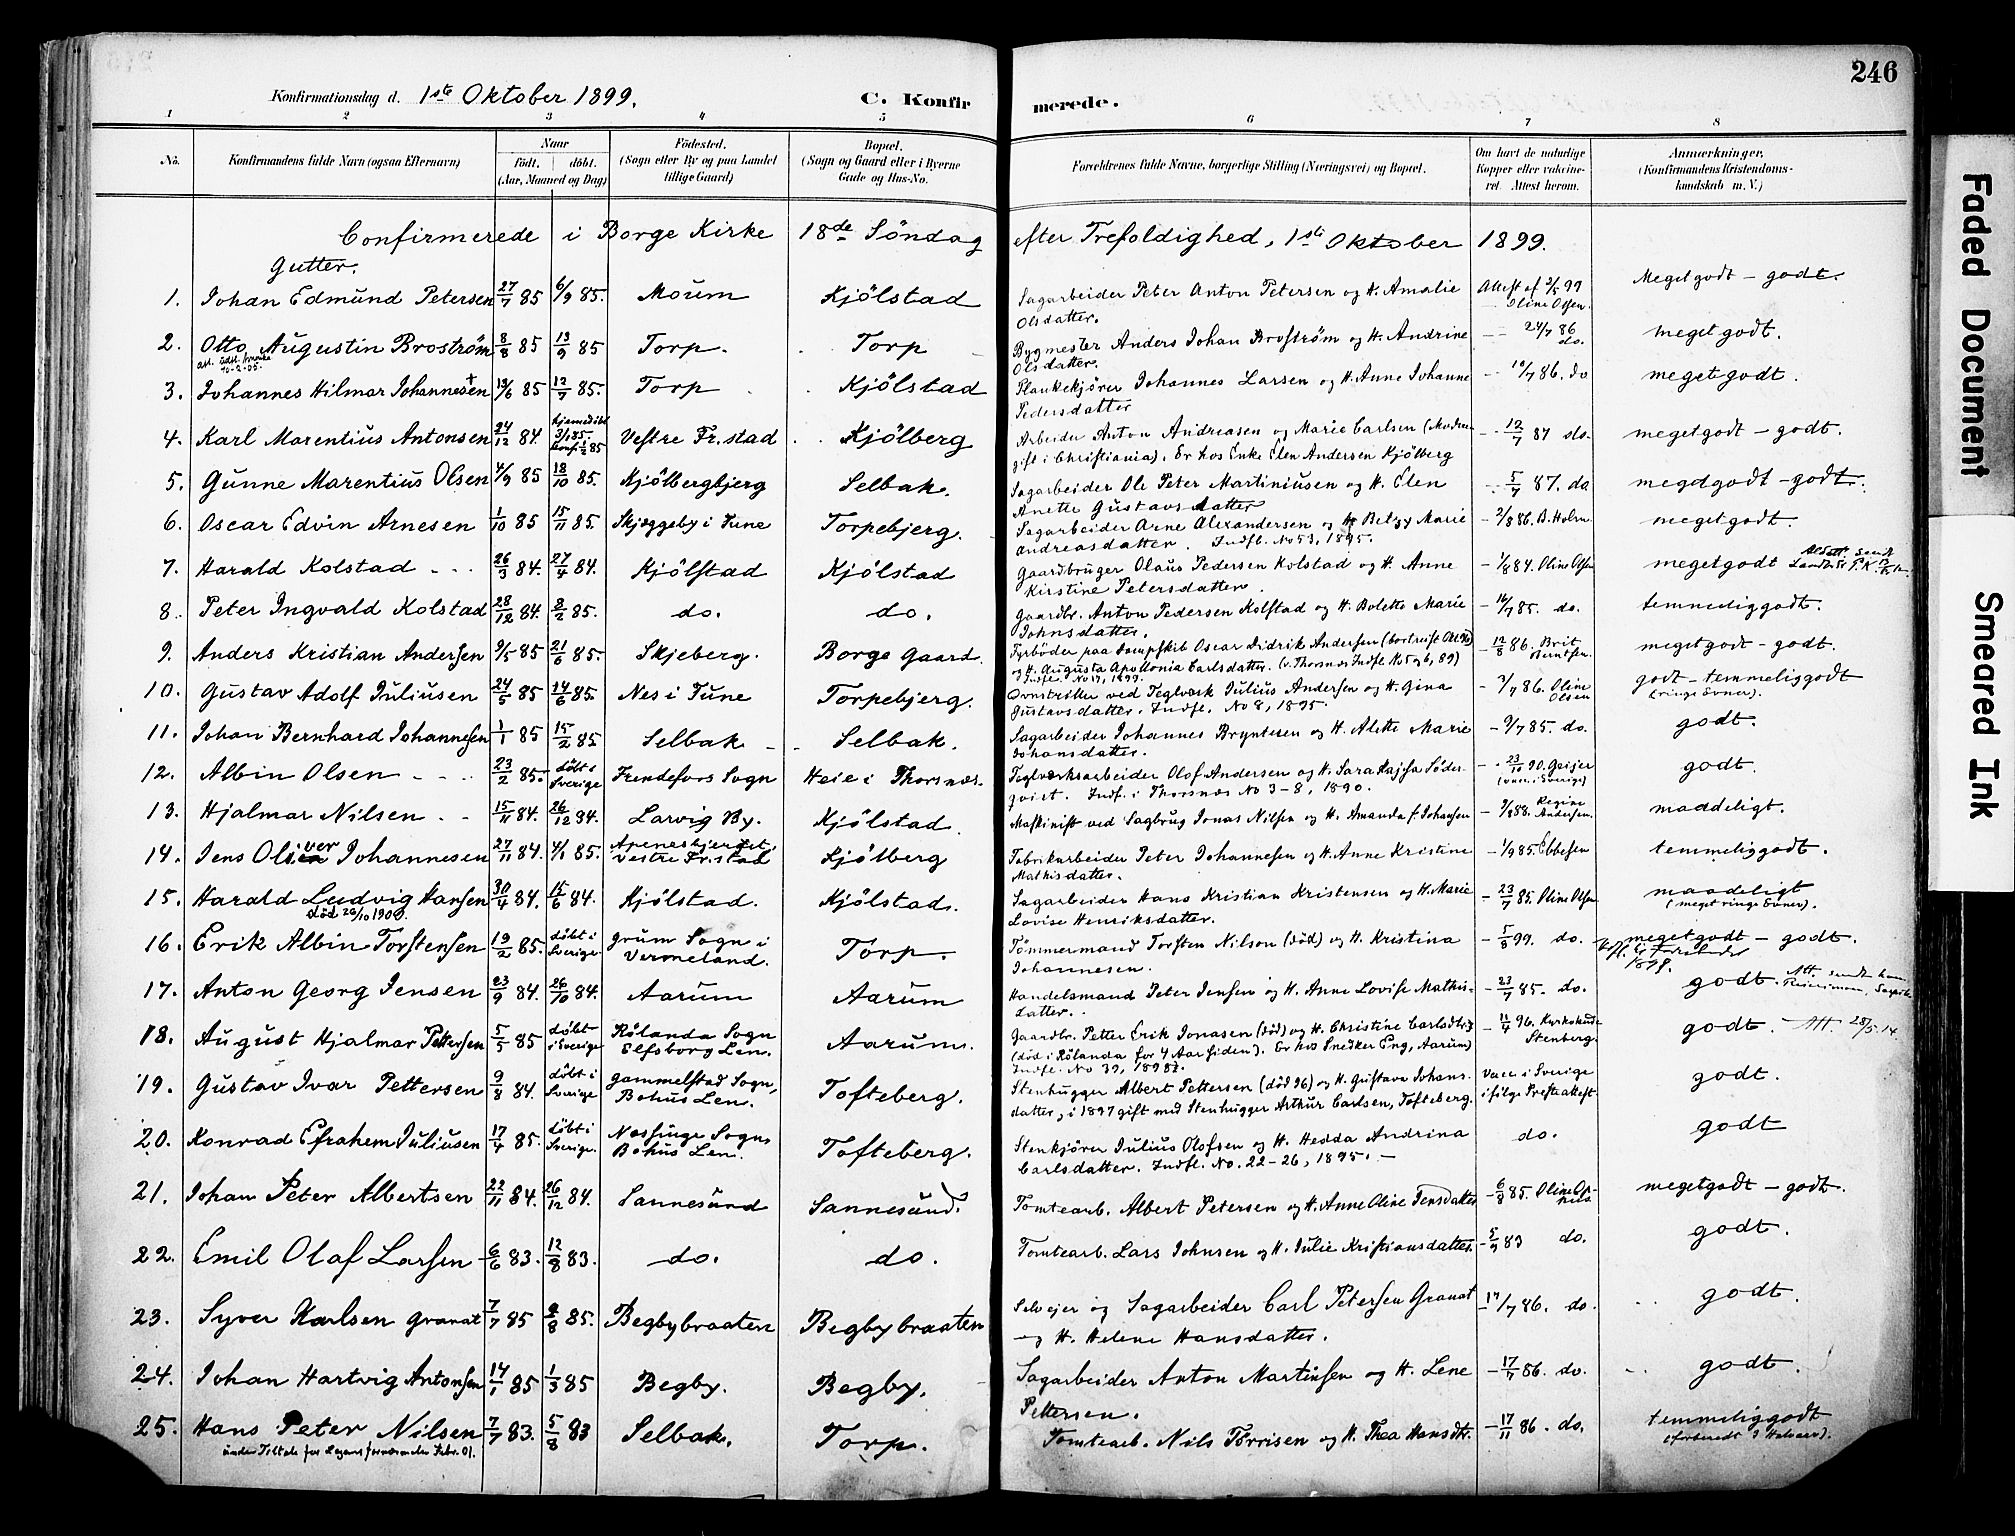 246
Konfirmationsdag d. 1ste Oktober 1899. C. Konfirmerede.
1 2 3 4 5 6 7 8
No. Konfirmandens fulde Navn (ogsaa Efternavn) Naar født, døbt. (Aar, Maaned og Dag) Fødested. (Sogn eller By og paa Landet tillige Gaard) Bopæl. (Sogn og Gaard eller i Byerne Gade og Hus-No. Forældrenes fulde Navne, borgerlige Stilling (Næringsvei) og Bopæl. Om havt de naturlige Kopper eller vaccineret. Attest herom. Anmærkninger. (Konfirmandens Kristendomskundskab m. V.)
Confirmerede i Borge Kirke 18de Söndag efter Trefoldighed, 1ste Oktober 1899.
Gutter.
1. Johan Edmund Petersen 27/7 85 6/9 85. Moum Kjölstad Sagarbeider Peter Anton Petersen og H. Amalie Olsdatter. Attest af 3/5 99 Oline Olsen. Meget godt – godt.
2. Otto Augustin Broström 8/8 85 13/9 85 Torp. Torp Bygmester Anders Johan Broström og H. Andrine Olsdatter. 24/7 86 do. meget godt.
3. Johannes Hilmar Johannesen 19/6 85 12/7 85. Torp Kjölstad Plankekjörer Johannes Larsen og H. Anne Johanne Pedersdatter 10/7 86. do meget godt.
4. Karl Marentius Antonsen 24/12 84. hjemmedöbt 3/1 85. Vestre Fr.stad Kjölberg Arbeider Anton Andreasen og Marie Carlsen (Moderen gift i Christiania). Er hos Enke Elen Andersen Kjölberg 12/7 87 do. meget godt – godt.
5. Gunne Marentius Olsen 4/9 85 18/10 85. Kjölbergbjerg Selbak. Sagarbeider Ole Peter Martiniusen og H. Elen Anette Gustavsdatter 5/7 87. do meget godt – godt.
6. Oscar Edvin Arnesen 1/10 85 15/11 85. Skjeggeby i Tune Torpebjerg. Sagarbeider Arne Alexandersen og H. Betzy Marie Andreasdatter. Indfl. No 53, 1895. 2/8 86. B. Holm meget godt.
7. Harald Kolstad 26/3 84. 27/4 84. Kjölstad Kjölstad Gaardbruger Olaus Pedersen Kolstad og H. Anne Kirstine Petersdatter. 1/8 84. Oline Olsen meget godt
8. Peter Ingvald Kolstad 28/12 84. 8/2 85. do. do. Gaardbr. Anton Pedersen Kolstad og H. Bolette Marie Johnsdatter. 16/7 85. do. temmelig godt.
9. Anders Kristian Andersen 9/5 85 21/6 85. Skjeberg. Borge Gaard. Fyrböder paa Dampskib Oscar Didrik Andersen og H. Augusta Apollonia Carlsdatter. (v. Thorsnes Indfl. No 5 og 6, 89) Indfl. No 17, 1899. 12/8 86. meget godt – godt.
10. Gustav Adolf Juliusen 24/5 85 14/6 85. Nes i Tune Torpebjerg. Ovnstriller ved Teglværk Julius Andersen og H. Gina Gustavsdatter. Indfl. No 8, 1895. 3/7 86. Oline Olsen godt – temmelig godt (ringe Evner).
11. Johan Bernhard Johannesen 1/1 85 15/2 85 Selbak Selbak. Sagarbeider Johannes Bryntesen og H. Alette Marie Johansdatter. 9/7 85. do. godt.
12. Albin Olsen 23/2 85. döbt i Sverige Frendefors Sogn Heie i Thorsnæs. Teglværksarbeider Olof Andersen og H. Sara Kajsa Söderqvist. Indf. i Thorsnæs No 3-8, 1890. 23/10 90. Geijer (vacc. i Sverige) godt.
13. Hjalmar Nilsen 15/11 84. 26/12 84. Larvig By. Kjölstad. Maskinist ved Sagbrug Jonas Nilsen og H. Amanda f. Johansen 3/8 88. Regine Andersen. maadeligt.
14. Jens Oliver Johannesen 27/11 84. 4/1 85. Vestre Fr.stad Kjölberg Fabrikarbeider Peter Johannesen og H. Anne Kristine Mathisdatter. 1/9 85. Ebbesen temmelig godt.
15. Harald Ludvig Hansen 30/4 84. 15/6 84. Kjölstad. Kjölstad. Sagarbeider Hans Kristian Kristensen og H. Marie Lovise Henriksdatter. 23/7 85. Oline Olsen maadeligt (meget ringe Evner).
död 20/10 1900.
16. Erik Albin Torstensen 19/2 85. döbt i Sverige Grum Sogn i Vermeland. Torp. Tömmermand Torsten Nilson (död) og H. Kristina Johannesen. 5/8 99. do. meget godt – godt.
17. Anton Georg Jensen 23/9 84. 26/10 84. Aarum Aarum Handelsmand Peter Jensen og H. Anne Lovise Mathisdatter. 23/7 85. do. godt.
18. August Hjalmar Pettersen 5/5 85 döbt i Sverige Rölanda Sogn Elfsborg Len. Aarum. Gaardbr. Petter Erik Jonasen (död) og H. Christine Carlsdtr. (död i Rölanda for 4 Aar siden). Er hos Snedker Eng, Aarum) Indfl. No 39, 1898. 11/4 96. Kyrkoherde Stenberg. godt. Att. 28/5 14.
19. Gustav Ivar Pettersen 9/8 84. döbt i Sverige Gammelstad Sogn, Bohus Len. Tofteberg. Stenhugger Albert Pettersen (död 96) og H. Gustava Johansdatter, i 1897 gift med Stenhugger Arthur Carlsen, Tofteberg. Vacc. i Sverige ifölge Presteattest. godt.
20. Konrad Efrahem Juliusen 17/4 85. döbt i Sverige. Næssinge Sogn, Bohus Len. Tofteberg. Stenkjörer Julius Olofsen og H. Hedda Andrina Carlsdatter. Indfl. No. 22-26, 1895. do. godt
21. Johan Peter Albertsen 22/11 84. 26/12 84. Sannesund Sannesund. Tomtearb. Albert Petersen og H. Anne Oline Jensdatter 6/8 85. meget godt – godt.
22. Emil Olaf Larsen 6/6 83. 12/8 83. do. do. Tomtearb. Lars Johnsen og H. Julie Kristiansdatter. 5/9 83 do. godt.
23. Syver Karlsen Granat 7/7 85 2/8 85. Begbybraaten Begbybraaten Selveier og Sagarbeider Carl Petersen Granat og H. Helene Hansdatter. 17/7 86. do. godt.
24. Johan Hartvig Antonsen 14/1 85 1/3 85 Begby. Begby. Sagarbeider Anton Martinsen og H. Lene Pettersen. 17/7 86. do. godt.
25. Hans Peter Nilsen 7/7 83. 5/8 83 Selbak. Torp. Tomtearb. Nils Törrisen og H. Thea Hansdtr. 17/11 86. do. temmelig godt
Faded Document
Smeared Ink